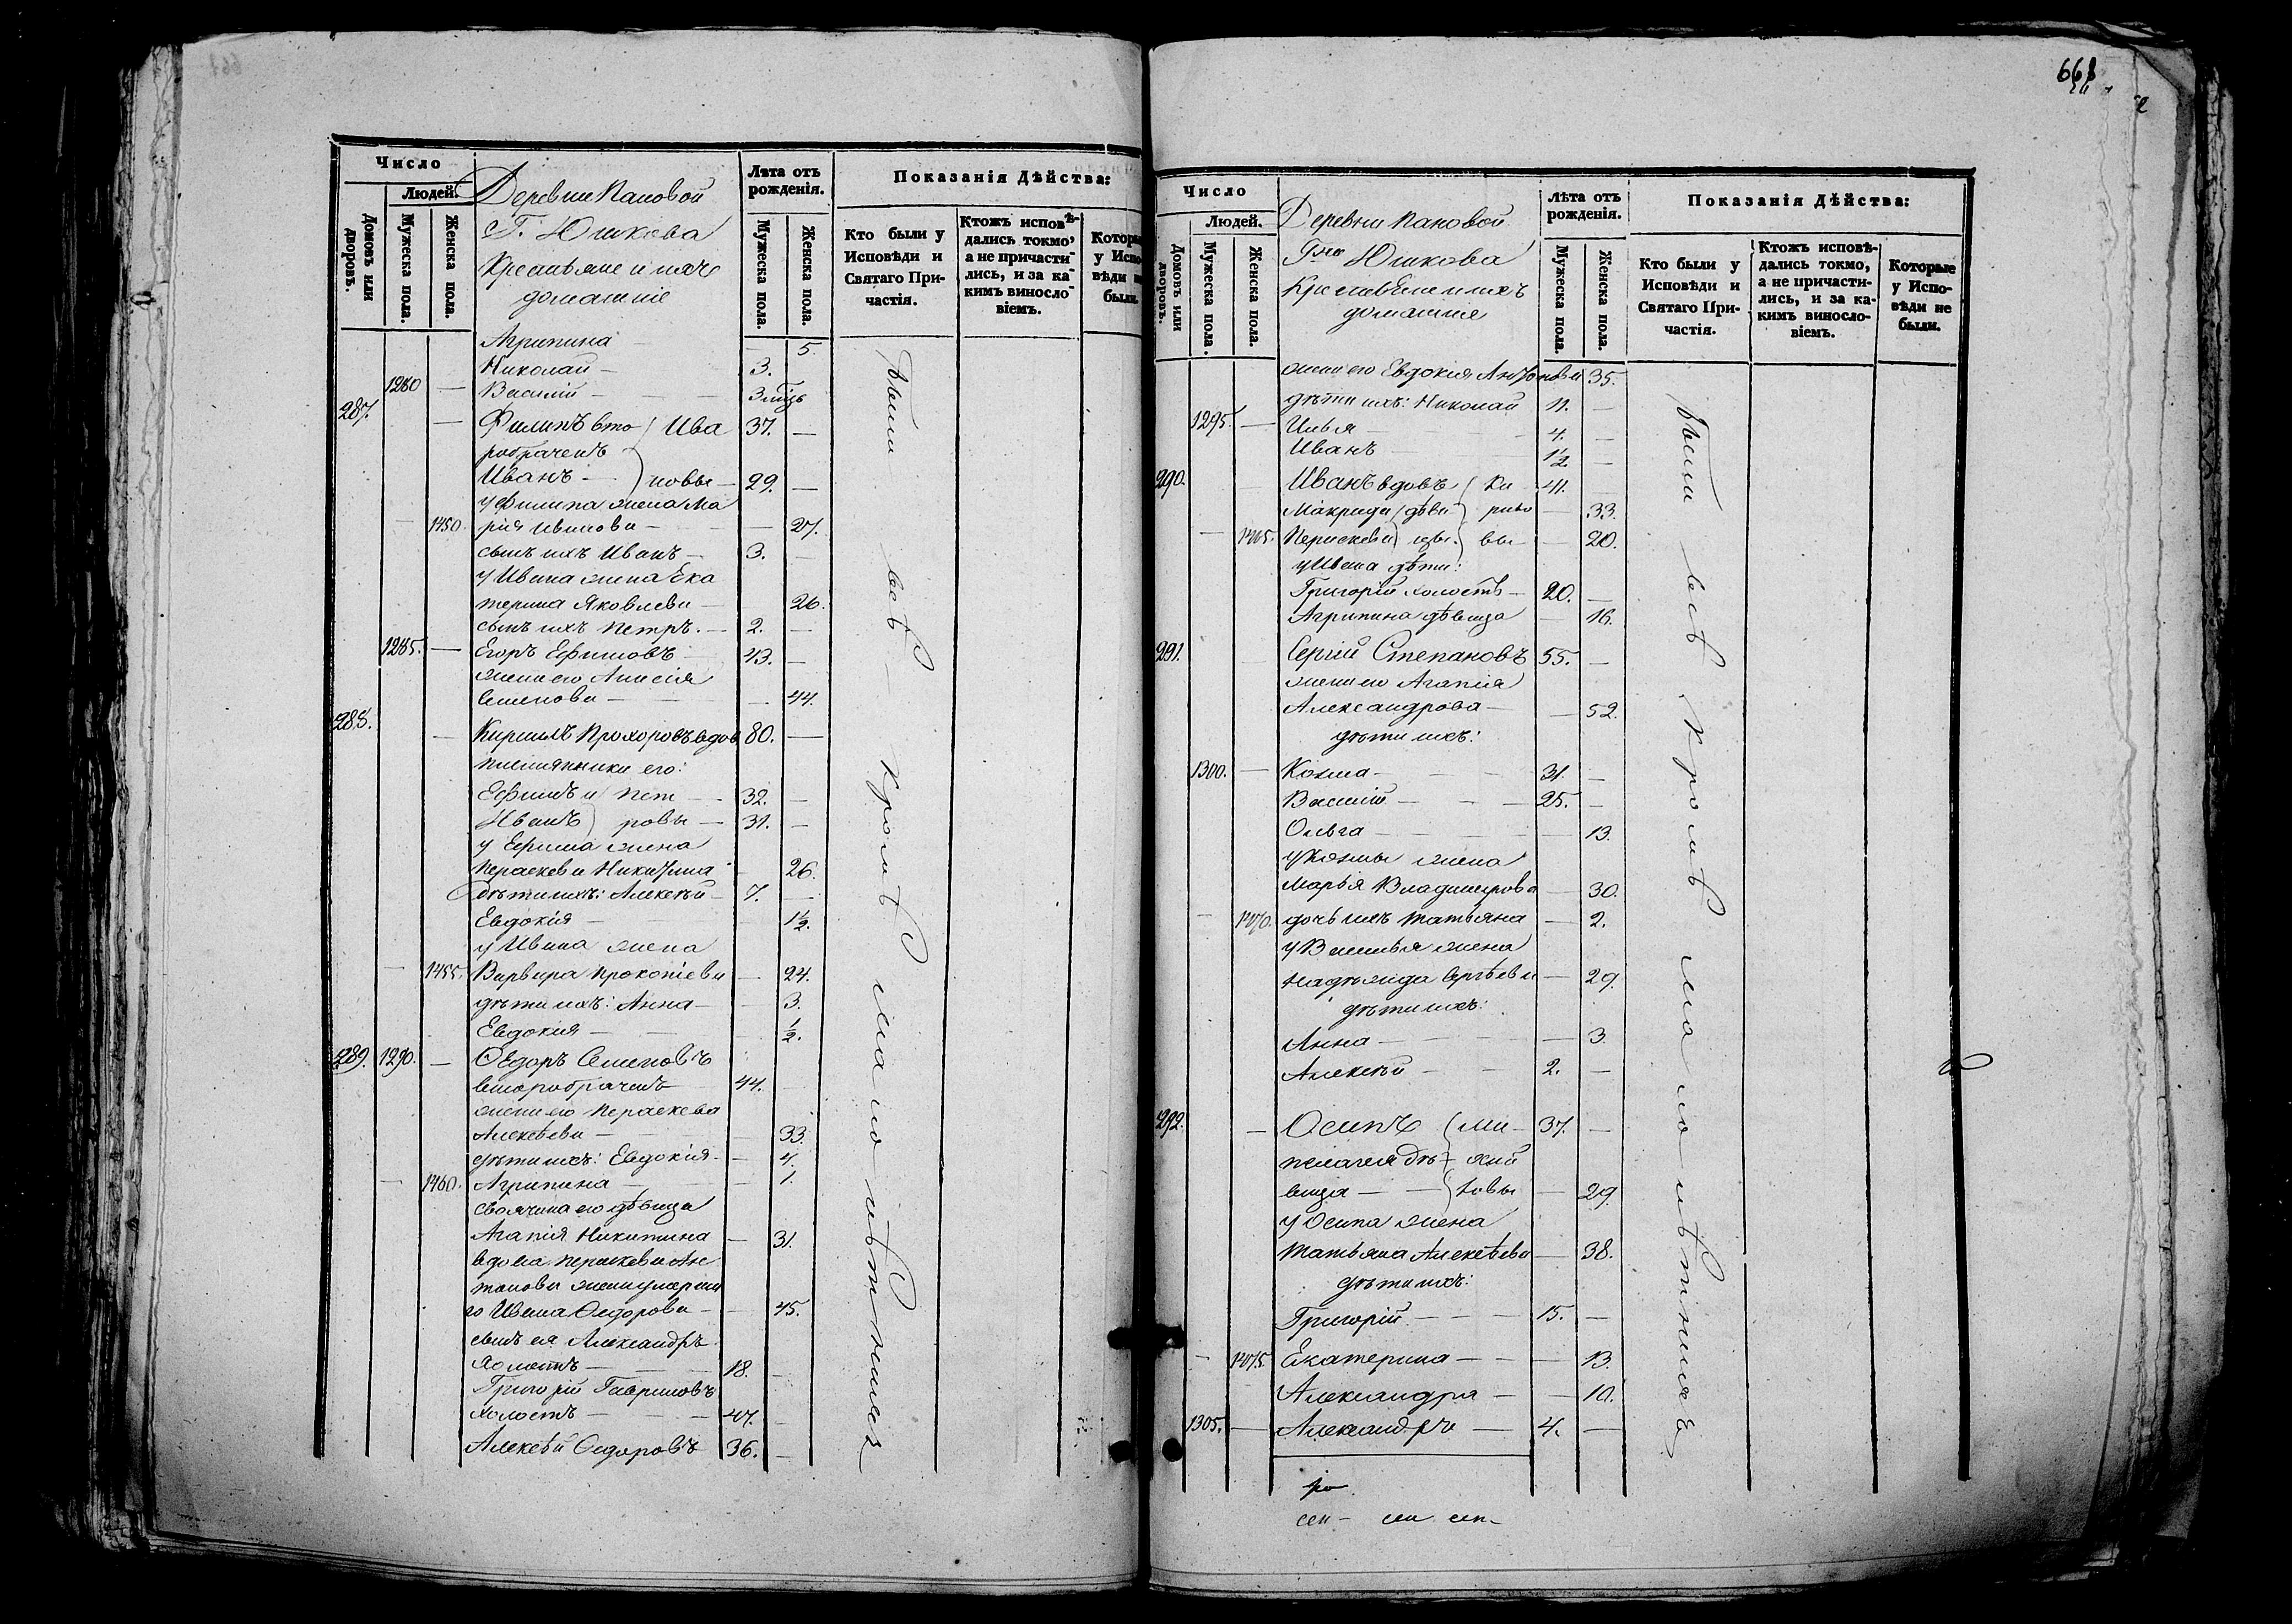 Число
Людей.
Домовъ или дворовъ.
Мужеска пола.
Женска пола.
Деревни Пановой
Г. Юшкова
Крестьяне и ихъ
домашніе
Лѣта отъ рожденія.
Мужеска пола.
Женска пола.
Показанія Дѣйства:
Кто были у Исповѣди и Святаго Причастія.
Ктожъ исповѣдались токмо, а не причастились, и за какимъ винословіемъ.
Которые у Исповѣди не были.
Агрипина — 5.
Николай — 3.
1280 — Василій — 3
287. — Филипъ вто ( Ива 37. —
робраченъ
Иванъ — ) новы — 29. —
у Филипа жена Ма
— 1450. рія Иванова — — 27.
сынъ ихъ Иванъ — 3. —
у Ивана жена Ека
терина Яковлева — 26.
сынъ ихъ Петръ. — 2. —
1285. — Егоръ Ефимовъ 43. —
жена его Анисія
Семенова — — 44.
288. — Кирилъ Прохоровъ вдов 80. —
племянники его:
Ефимъ и ( Пет — 32. —
Иванъ ) ровы — 31. —
у Ефима жена
Параскева Никитина — 26.
дѣти ихъ: Алексѣй — 7. —
Евдокія — 1½.
у Ивана жена
— 1455. Варвара Прокопіева — 24.
дѣти ихъ: Анна — — 3.
Евдокія — ½.
289. 1290. — Ѳедоръ Семеновъ
второбраченъ 44. —
жена его Параскева
Алексѣева — — 33.
дѣти ихъ: Евдокія — — 4.
— 1460. Агрипина — — 1.
своячина его дѣвица
Агапія Никитина — 31.
вдова Параскева Ан
тонова жена умерша
го Ивана Ѳедорова — — 45.
сынъ ея Александръ
холостъ — 18. —
Григорій Гавриловъ
холостъ — 47. —
Алексѣй Ѳедоровъ 36. —
Были всѣ кромѣ малолѣтнихъ
668
Число
Людей.
Домовъ или дворовъ.
Мужеска пола.
Женска пола.
Деревни Пановой
Гна Юшкова
Крестьяне и ихъ
домашніе
Лѣта отъ рожденія.
Мужеска пола.
Женска пола.
Показанія Дѣйства:
Кто были у Исповѣди и Святаго Причастія.
Ктожъ исповѣдались токмо, а не причастились, и за какимъ винословіемъ.
Которые у Исповѣди не были.
жена его Евдокія Антонова 35.
дѣти ихъ: Николай 11. —
1295. — Илья — 4. —
Иванъ 1½ —
290. Иванъ вдовъ ( Ки 41. —
Макрида ( дѣви — рило — 33.
— 1465. Параскева ) цы. вы — 20.
у Ивана дѣти:
Григорій холостъ — 20. —
Агрипина дѣвица — 16.
291. Сергій Степановъ 55. —
жена его Агапія
Александрова — — 52.
дѣти ихъ:
1300. — Козма — 31. —
Василій — — 25. —
Ольга — — 13.
у Козмы жена
Марья Владимирова — 30.
— 1470. дочь ихъ Татьяна — 2.
у Василья жена
Надежида Сергѣева — 29.
дѣти ихъ:
Анна — — 3.
Алексѣй — — 2. —
292. — Осипъ ( Ми — 37. —
Пелагея дѣ — хай
вица — — ) ловы — 29.
у Осипа жена
Татьяна Алексѣева — 38.
дѣти ихъ:
Григорій — — 15. —
— 1475. Екатерина — — 13.
Александра — — 10.
1305. — Александръ — 4. —
Были всѣ кромѣ малолѣтнихъ